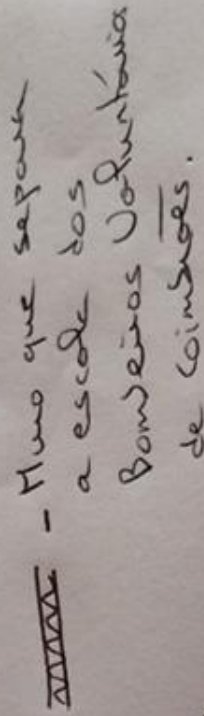 - Muro que separa
a escola dos
Bombeiros Voluntários
de Coimbrões.